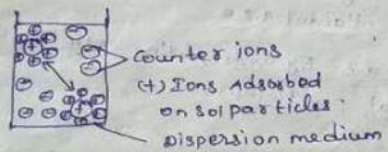 Counter ions
(+) Ions Adsorbed
on sol particles.
Dispersion medium